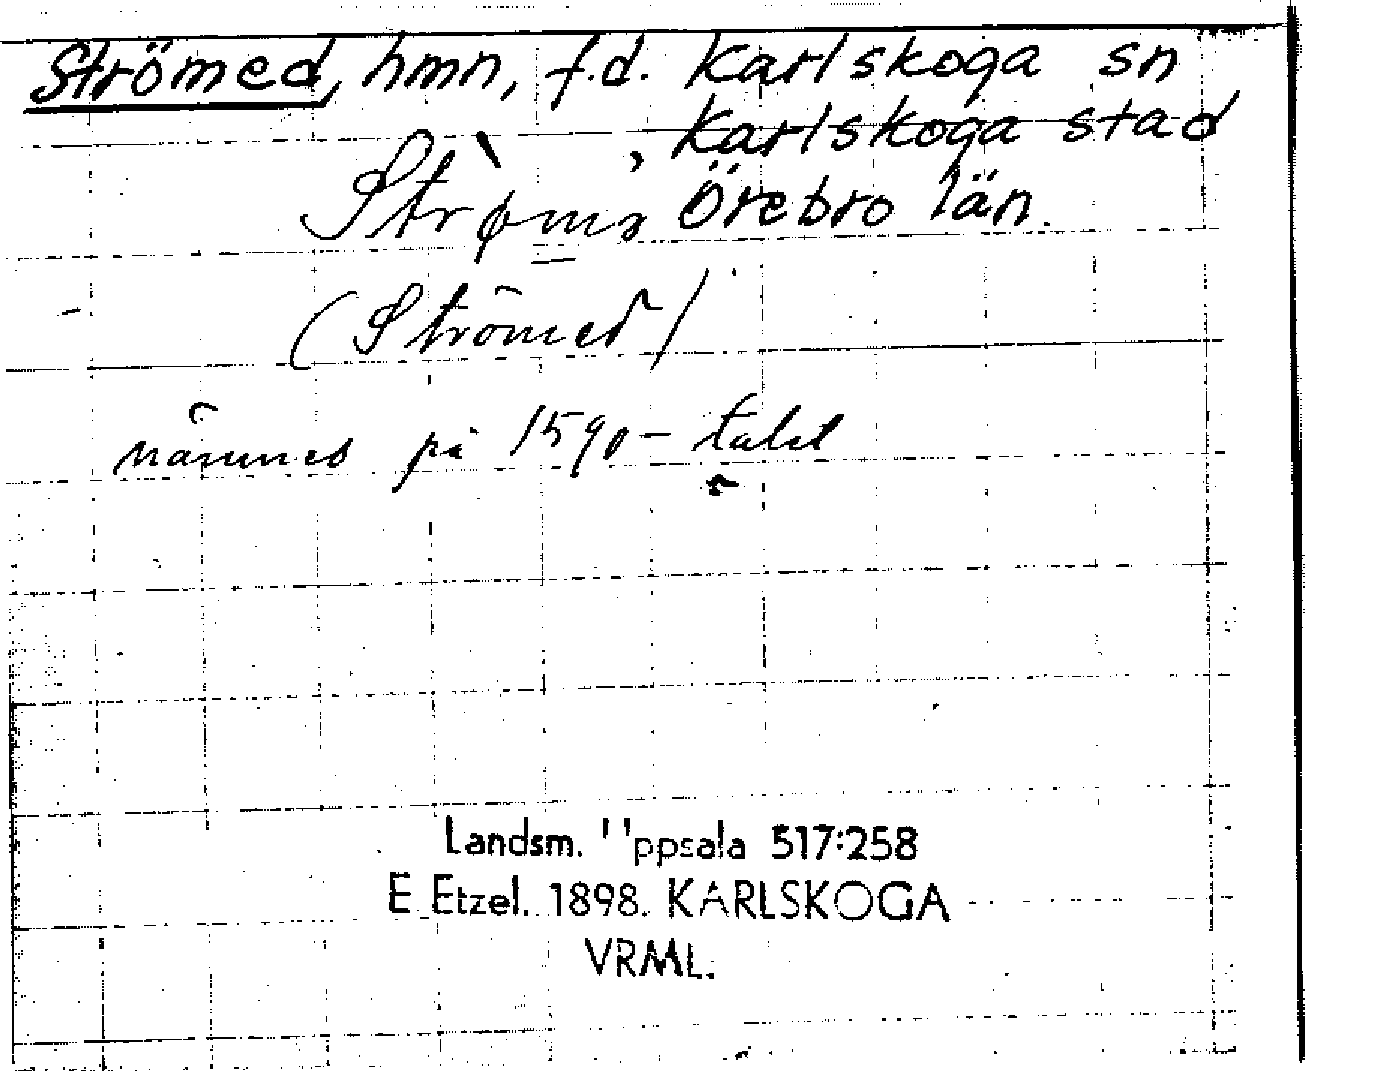 Strömed, hmn, f.d. Karlskoga sn
Karlskoga stad
Örebro län.
(Strömed)
nämnes på 1590-talet
Landsm. Uppsala 517:258
E Etzel. 1898. KARLSKOGA
VRML.